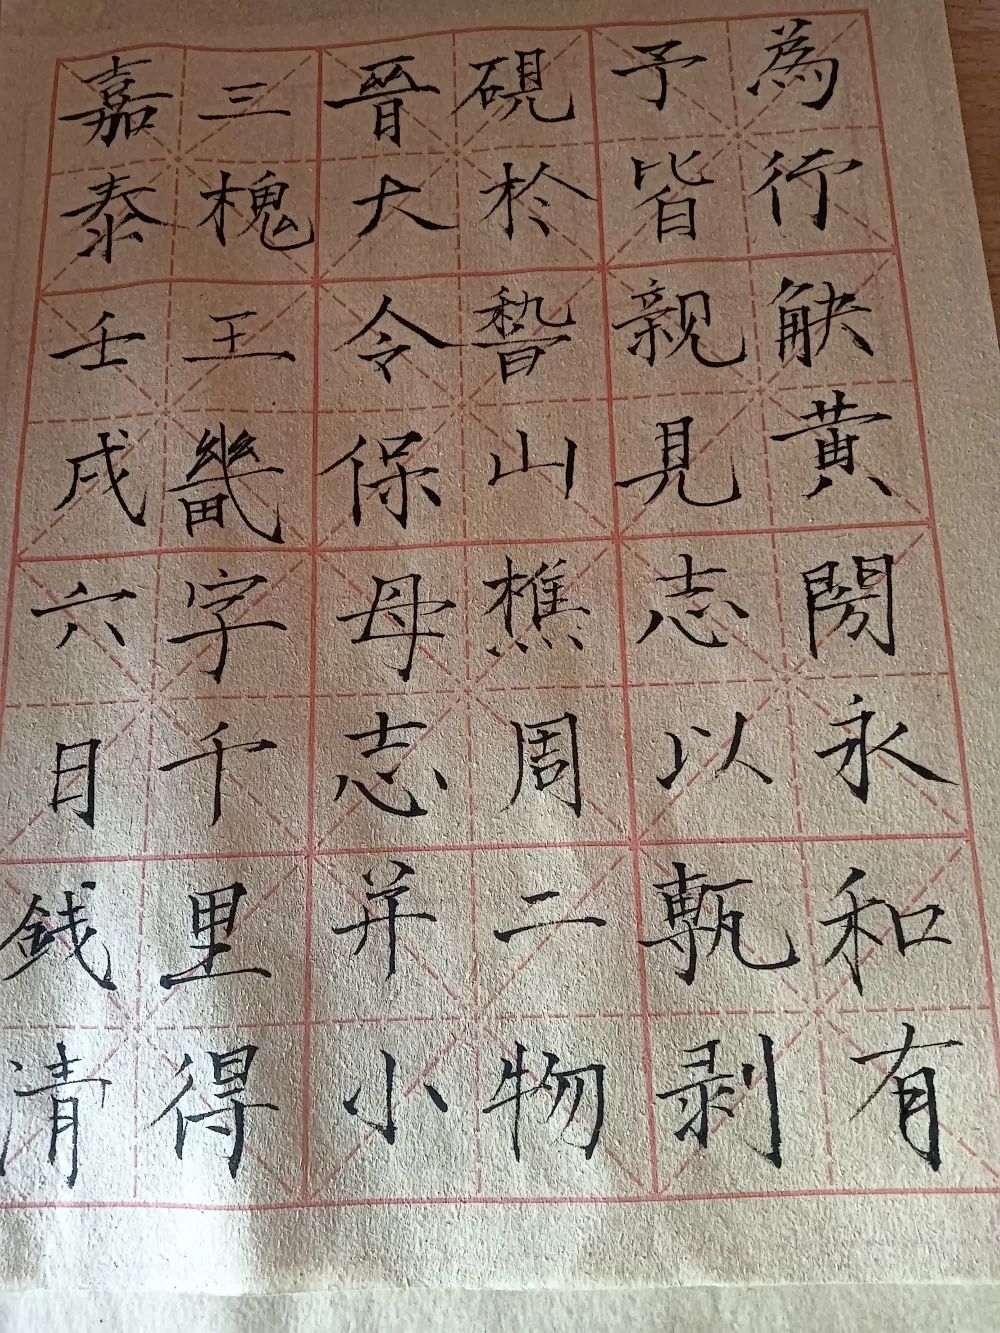 為行觖黄閍永和有
予皆親見志以甎剥
硯於稽山樵周二物
晉大令保母志并小
三槐王畿字千里得
嘉泰壬戌六日錢清